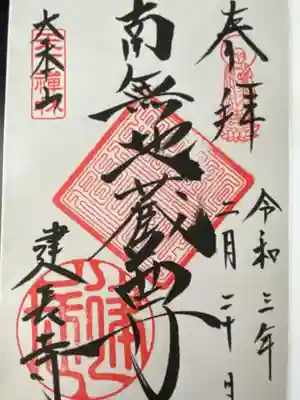 奉拝
令和三年
二月二十日
南無地蔵尊
大本山
建長寺